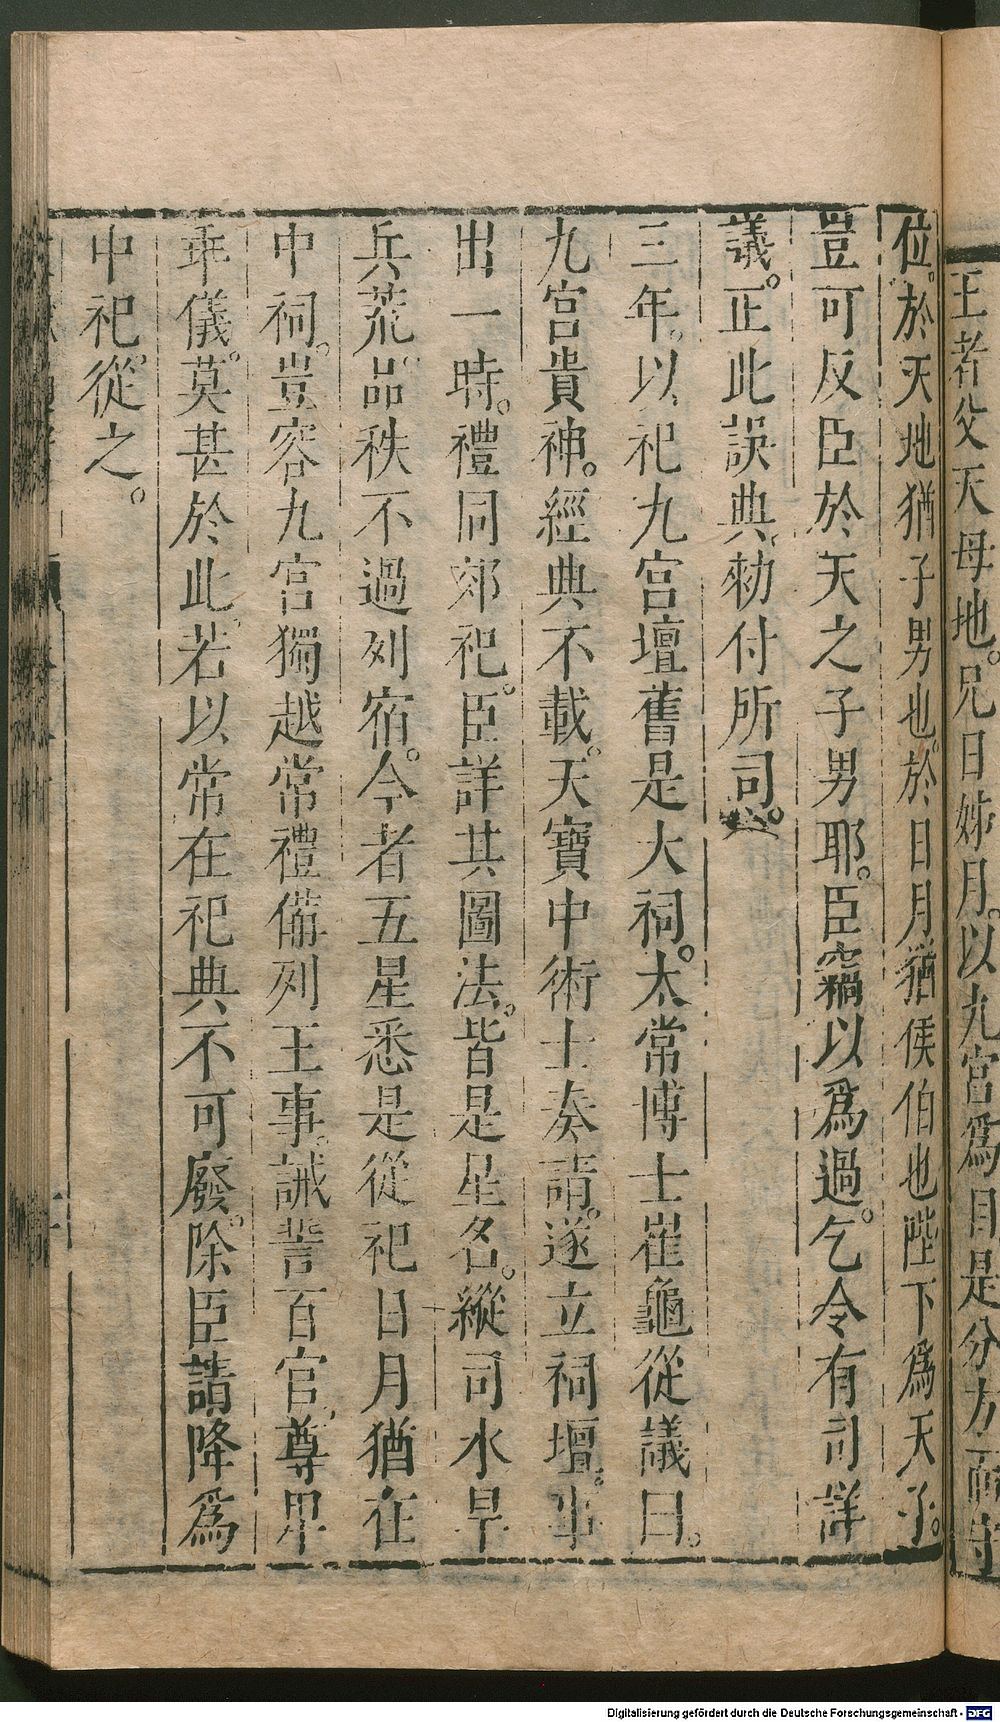 王者父天母地。兄日姊月。以九宮爲目是分方而守
位。於天地猶子男也。於日月猶侯伯也陛下爲天子。
豈可反臣於天之子男耶。臣竊以爲過。乞令有司詳
議。正此誤典。勑付所司。
三年。以祀九宮壇舊是大祠。太常博士崔龜從議曰。
九宮貴神。經典不載。天寶中術士奏請。遂立祠壇。事
出一時。禮同郊祀。臣詳其圖法。皆是星名。縱司水旱
兵荒。品秩不過列宿。今者五星悉是從祀日月猶在
中祠。豈容九宮獨越常禮備列王事。誡誓百官。尊卑
乖儀。莫甚於此。若以常在祀典不可廢除。臣請降爲
中祀。從之。
Digitalisierung gefördert durch die Deutsche Forschungsgemeinschaft - DFG